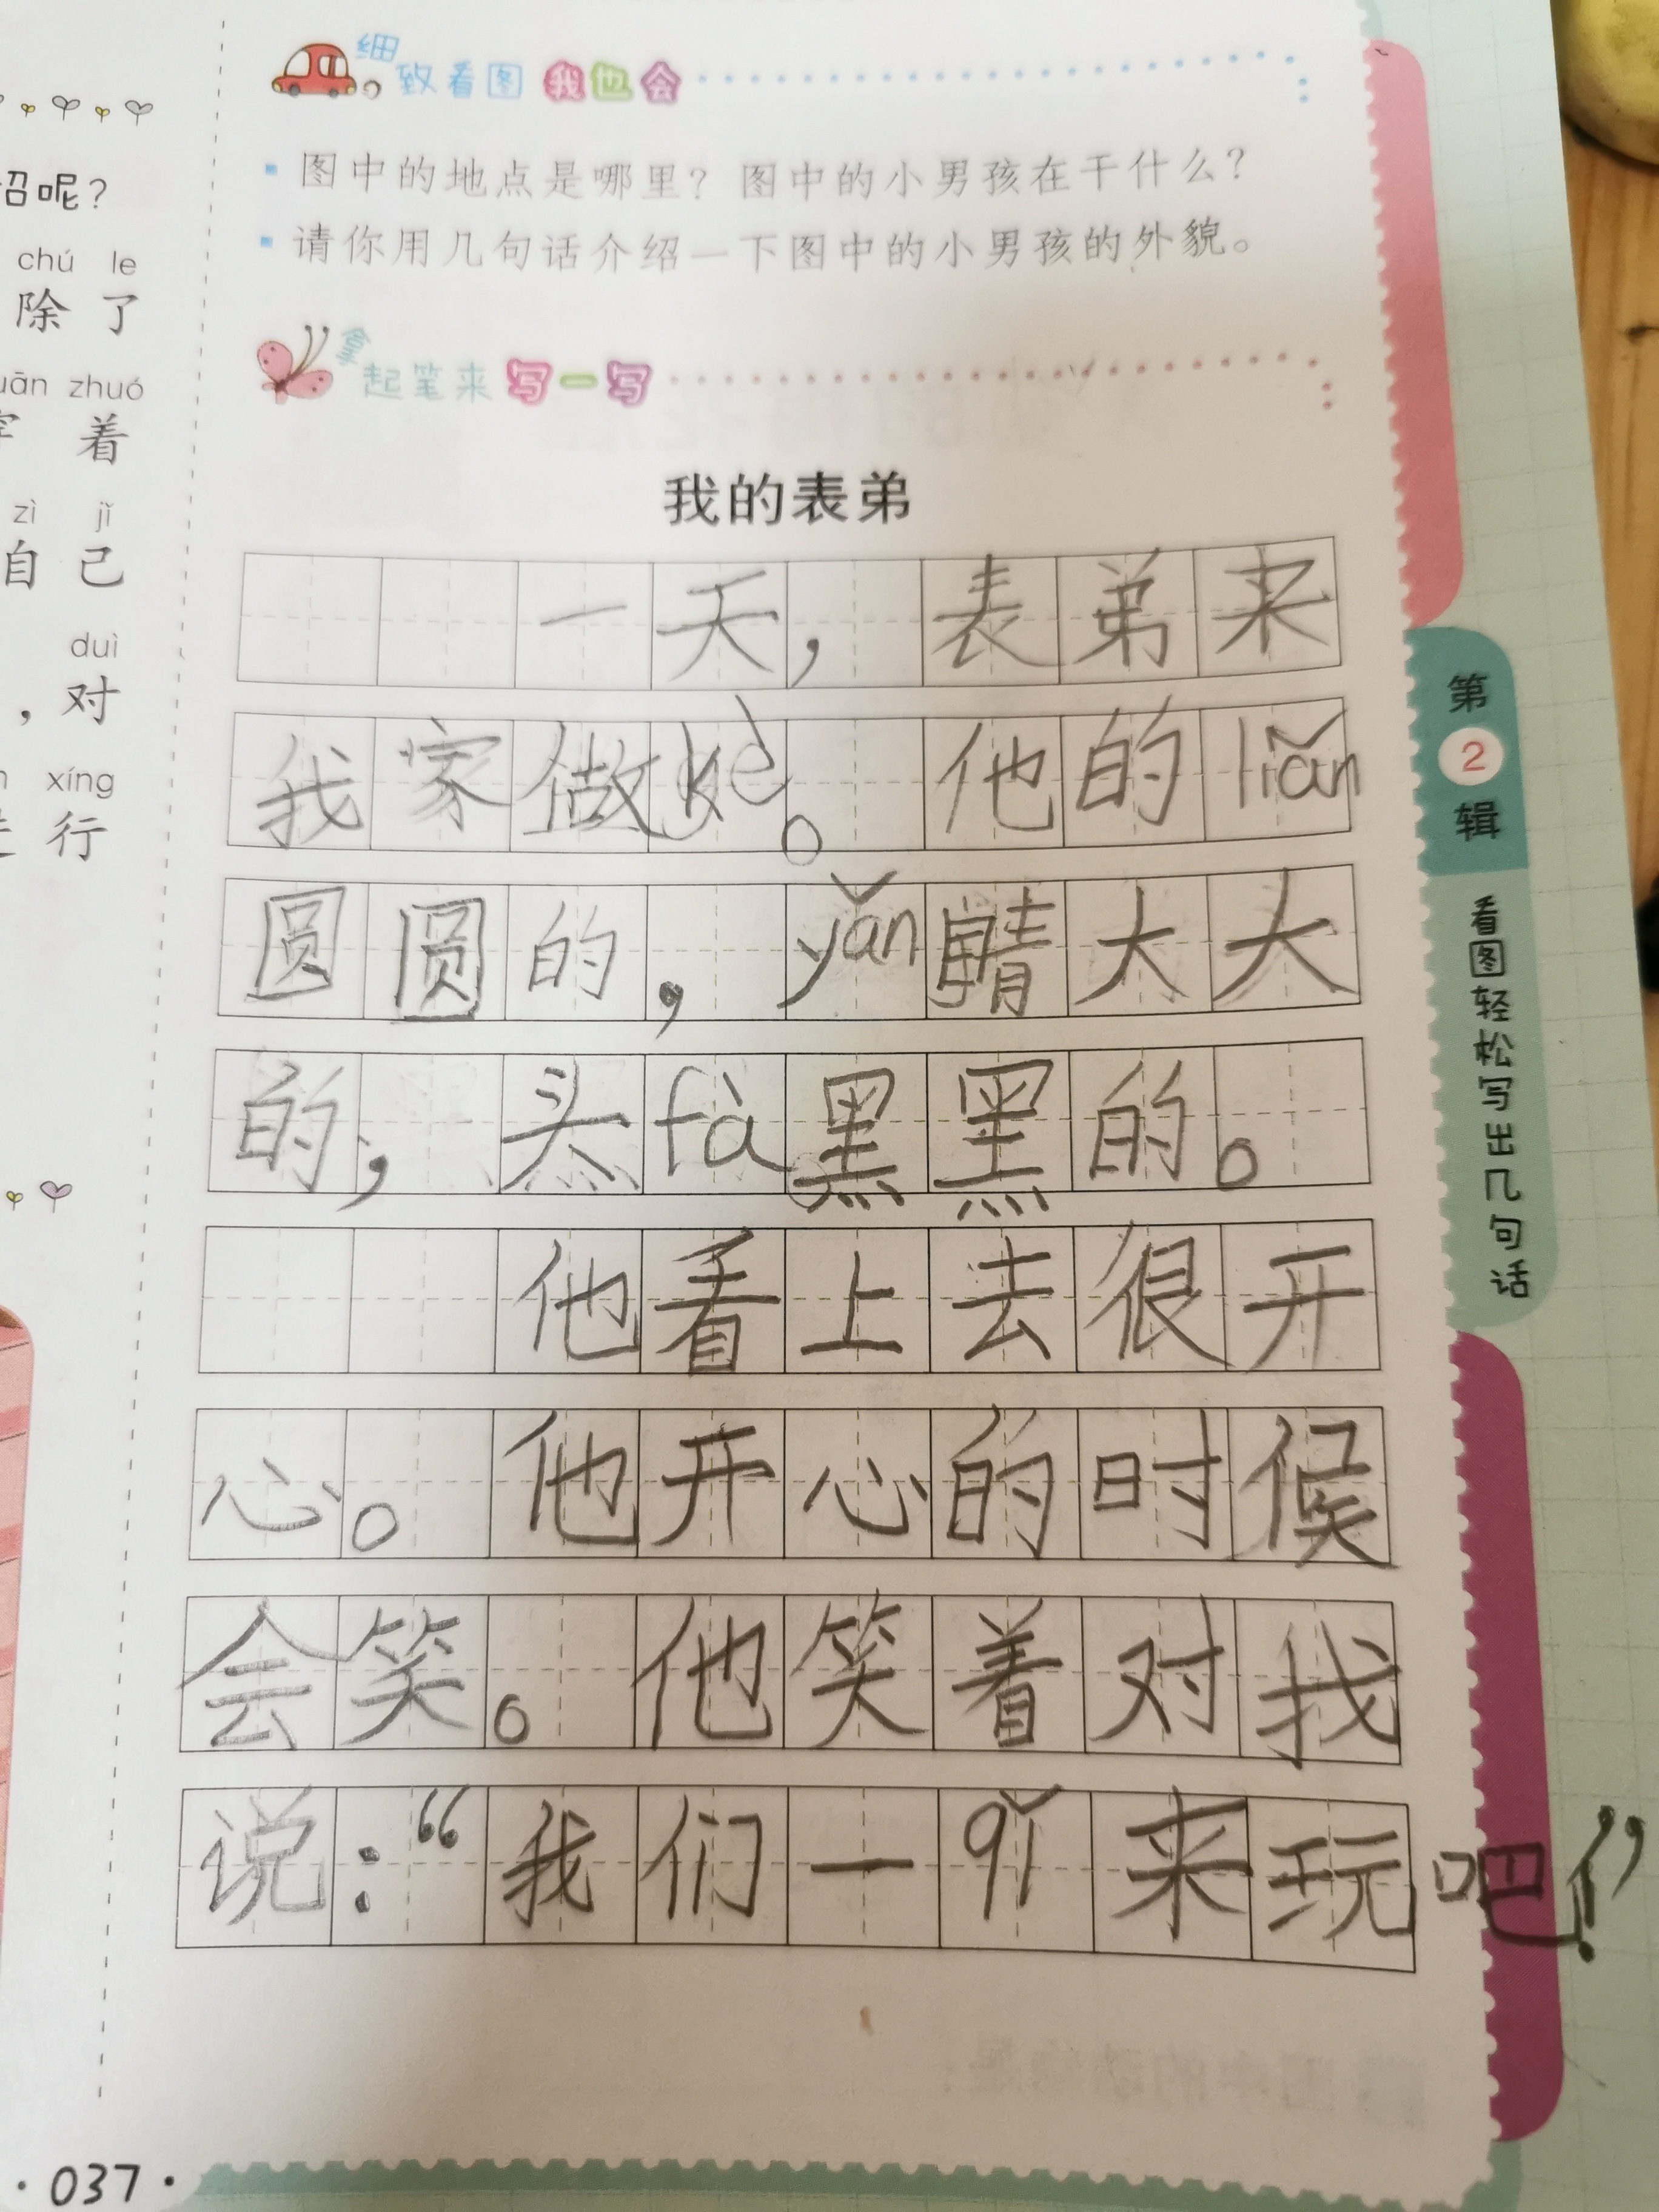 绍呢？
chú le
除了
zhuó
着
zì jǐ
自己
duì
，对
xíng
行
细致看图 我也会
图中的地点是哪里？图中的小男孩在干什么？
请你用几句话介绍一下图中的小男孩的外貌。
拿起笔来 写一写
我的表弟
一天，表弟来
我家做kè。他的liǎn
圆圆的，yǎn睛大大
的，头fà黑黑的。
他看上去很开
心。他开心的时候
会笑。他笑着对我
说：“我们一qǐ来玩吧！”
第2辑
看图轻松写出几句话
·037·